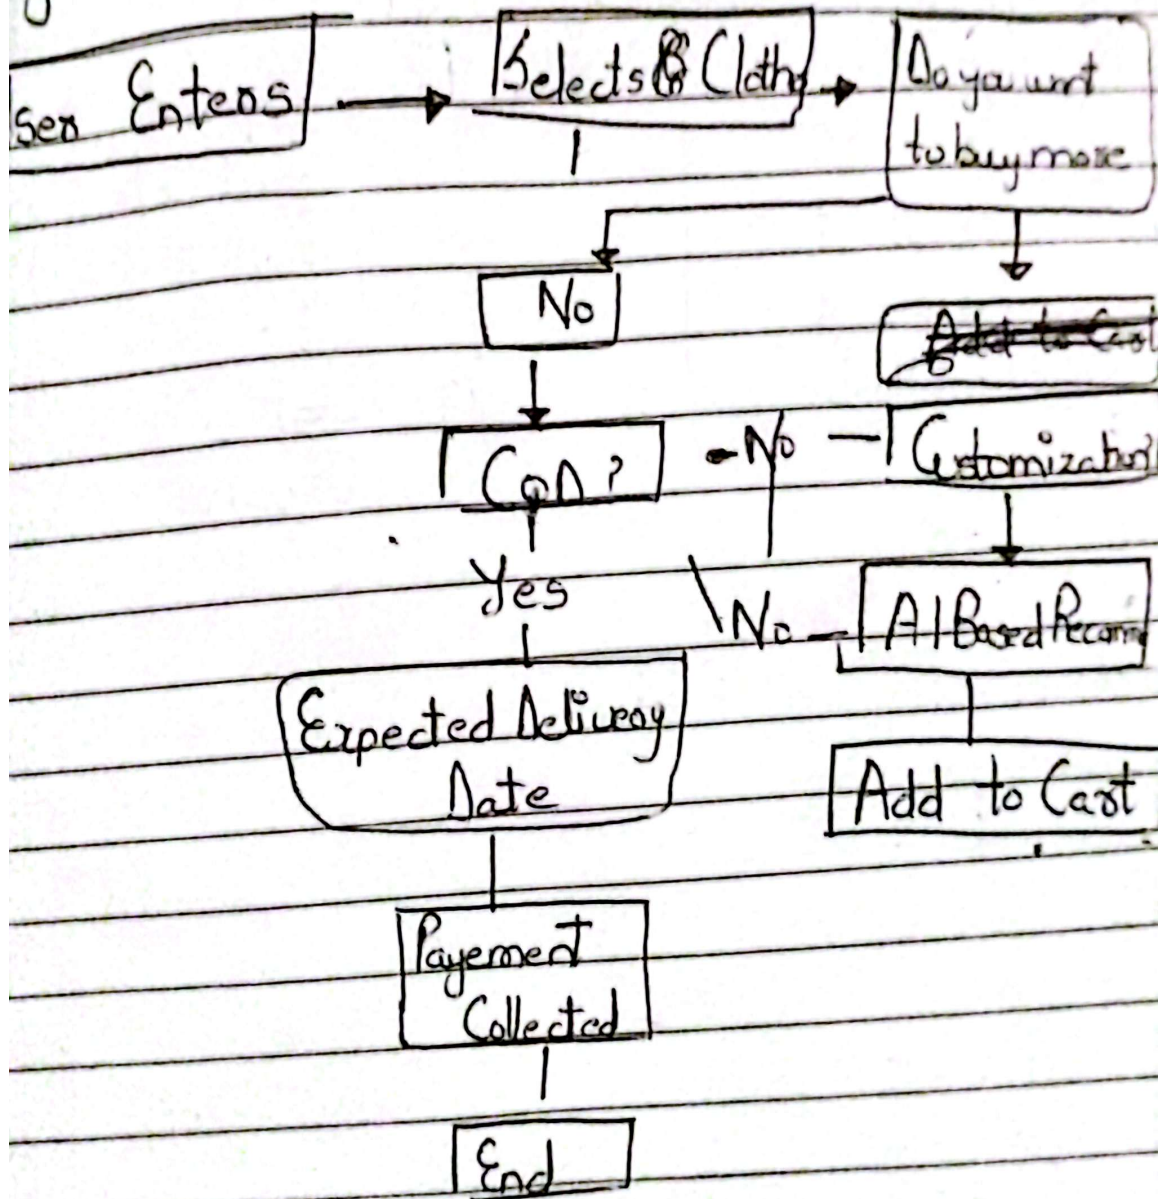 ser Enters
Selects Cloth
Do you wnt
to buy more
No
Add to Cart
CoD?
No
Customization?
Yes
No
AI Based Recomm
Expected Delivery
Date
Add to Cart
Payement
Collected
End